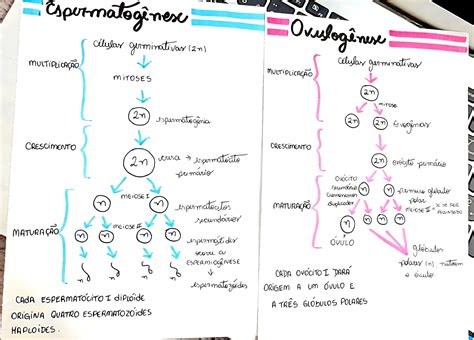 Espermatogênese
células germinativas (2n)
MULTIPLICAÇÃO
MITOSES
2n
espermatogônia
CRESCIMENTO
2n
espermatócito
primário
MEIOSE I
n
n
espermatócitos
secundários
MATURAÇÃO
MEIOSE II
n
n
n
n
espermátides
sofre a
ESPERMIOGÊNESE
espermatozoides
CADA ESPERMATÓCITO I DIPLÓIDE
ORIGINA QUATRO ESPERMATOZÓIDES
HAPLOIDES.
Ovulogênese
células germinativas
MULTIPLICAÇÃO
2n
mitose
2n
2n
CRESCIMENTO
2n
ovócito primário
OVÓCITO
secundário
cromossomos
duplicados
n
n
primeiro glóbulo
polar
MEIOSE II
MATURAÇÃO
n
n
n
n
ÓVULO
glóbulos
polares (n), nutrem
o óvulo
CADA OVÓCITO I DARÁ
ORIGEM A UM ÓVULO E
A TRÊS GLÓBULOS POLARES